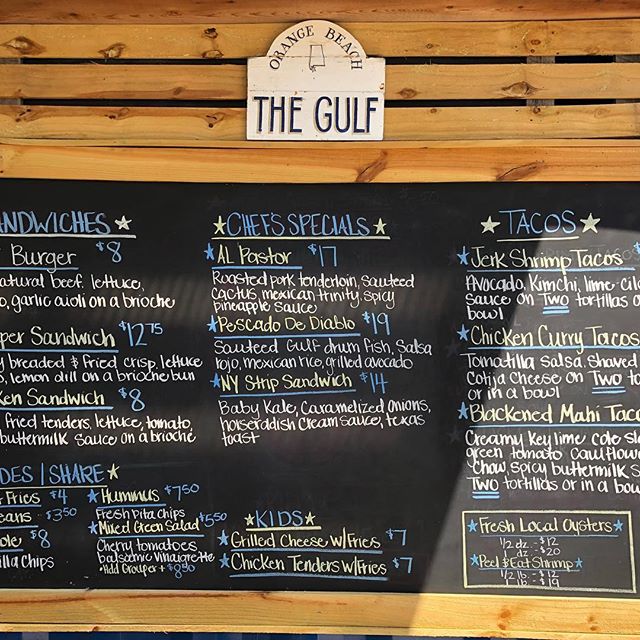 ORANGE BEACH
THE GULF
NDWICHES
Burger $8
natural beef, lettuce,
o, garlic aioli on a brioche
per Sandwich $12.75
y breaded & fried crisp, lettuce
s, lemon dill on a brioche bun
ken Sandwich $8
fried tenders, lettuce, tomato,
buttermilk sauce on a brioche
DES / SHARE
Fries $4
eans $3.50
ole $8
illa chips
Hummus $7.50
Fresh pita chips
Mixed Green Salad $5.50
Cherry tomatoes
balsamic vinaigrette
Add Grouper +
CHEF'S SPECIALS
AL Pastor $17
Roasted pork tenderloin, sauteed
cactus, mexican trinity, spicy
pineapple sauce
Pescado De Diablo $19
Sauteed Gulf drum fish, salsa
rojo, mexican rice, grilled avocado
NY Strip Sandwich $14
Baby Kale, Caramelized Onions,
horseraddish cream sauce, texas
toast
KIDS
Grilled Cheese w/Fries $7
Chicken Tenders w/Fries $7
TACOS
Jerk Shrimp Tacos $
Avocado, Kimchi, lime-cila
sauce on Two tortillas o
bowl
Chicken Curry Tacos
Tomatilla Salsa, Shaved
Cotija Cheese on Two to
or in a bowl
Blackened Mahi Taco
Creamy Key lime cole sla
green tomato cauliflowe
chow, spicy buttermilk s
Two tortillas or in a bow
Fresh Local Oysters
1/2 dz. - $12
dz - $20
Peel & Eat Shrimp
1/2 lb. - $12
1 lb - $19